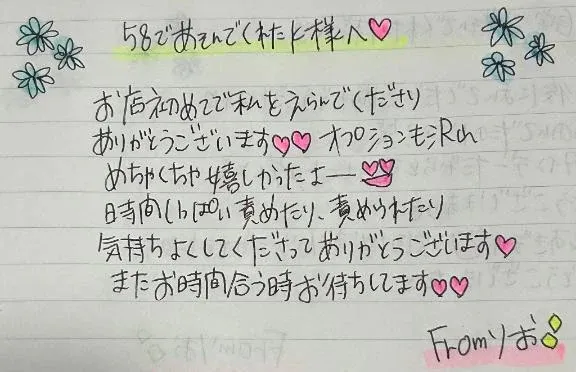 58であそんでくれたK様へ
お店初めてで私をえらんでくださり
ありがとうございます オプションも沢山
めちゃくちゃ嬉しかったよー
時間いっぱい責めたり、責められたり
気持ちよくしてくださってありがとうございます
またお時間合う時お待ちしてます
Fromりお